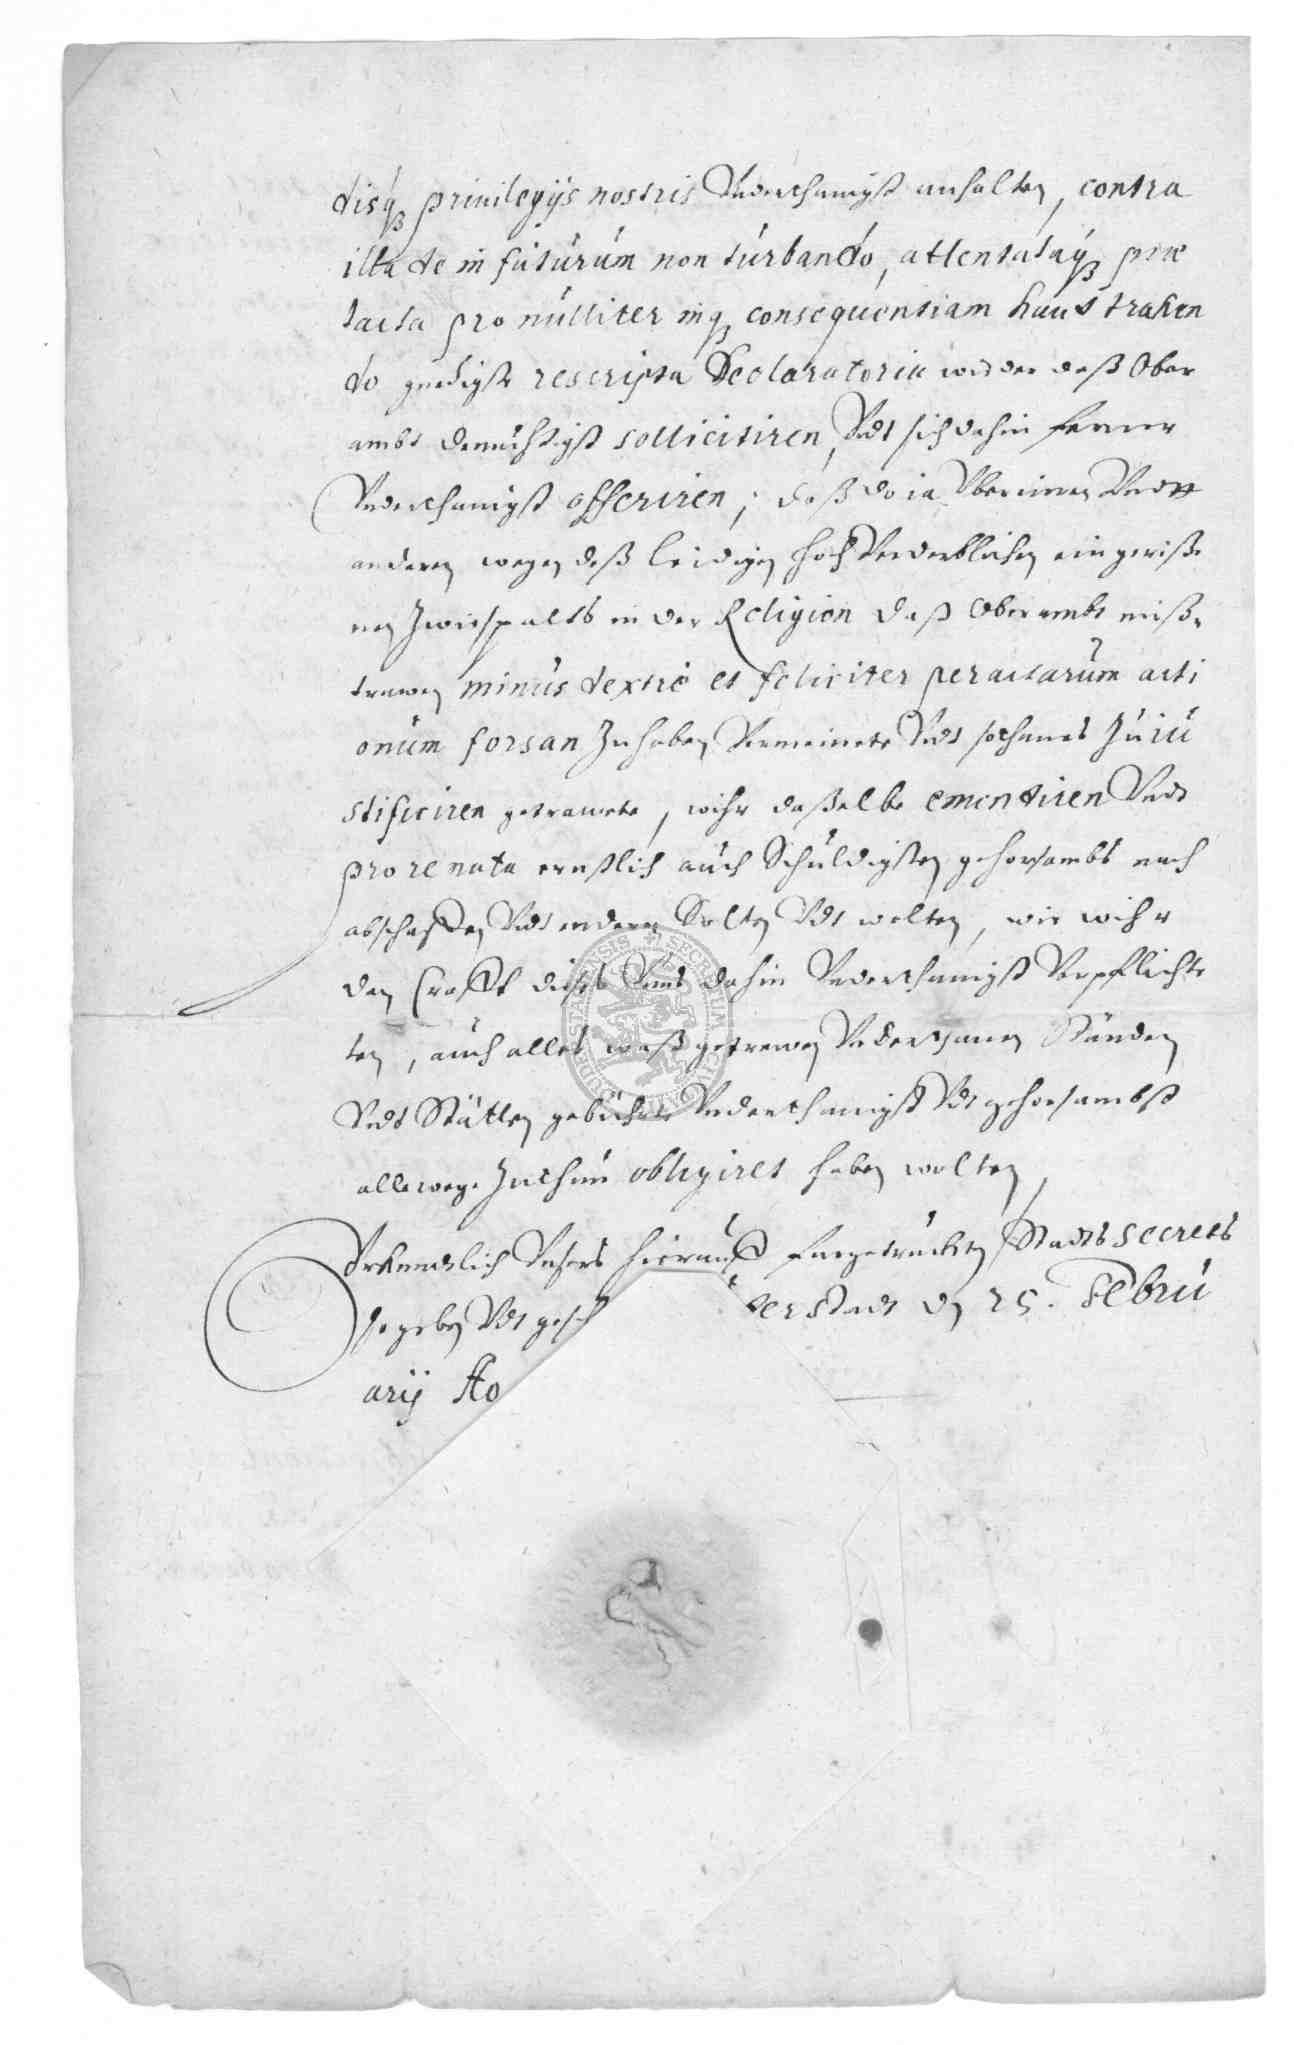 disq₃ privilegijs nostris Underthänigst anhalten, contra
illa de in futurum non turbando, attentataq₃ præ
tacta pro nulliter inq₃ consequentiam haut trahen
do gnedigste rescripta Declaratoria wieder daß Ober
ambt demühtigst sollicitiren, Undt sich dahin ferner
Underthänigst offeriren; daß do ia Uber einen Undt
anderen wegen deß leidigen hoch Verderblichen eingeriße
nen Zwiespalts in der Religion daß Oberambt miß-
trawen minus dextrè et feliciter peractarum acti
onum forsan Zu haben Vermeinete Undt solchanes Zu iu
stificiren getrawete, wihr daßelbe emendiren Undt
pro re nata ernstlich auch Schuldigsten gehorsambs nach
abschaffen Undt endern Solten Undt wolten, wie wihr
den Crafft dieses Unns dahin Underthänigst Verpflichte
ten, auch alles waß getrewen Underthanen Ständen
Undt Stätten gebühret Underthänigst Undt gehorsambst
allewege Zuthun obligiret haben wolten,
Urkundlich Unsers hierauff furgetruckten Stadtsecrets
So geben Undt gesch derstadt den 25. Febru
arij Ao
SECRETUM